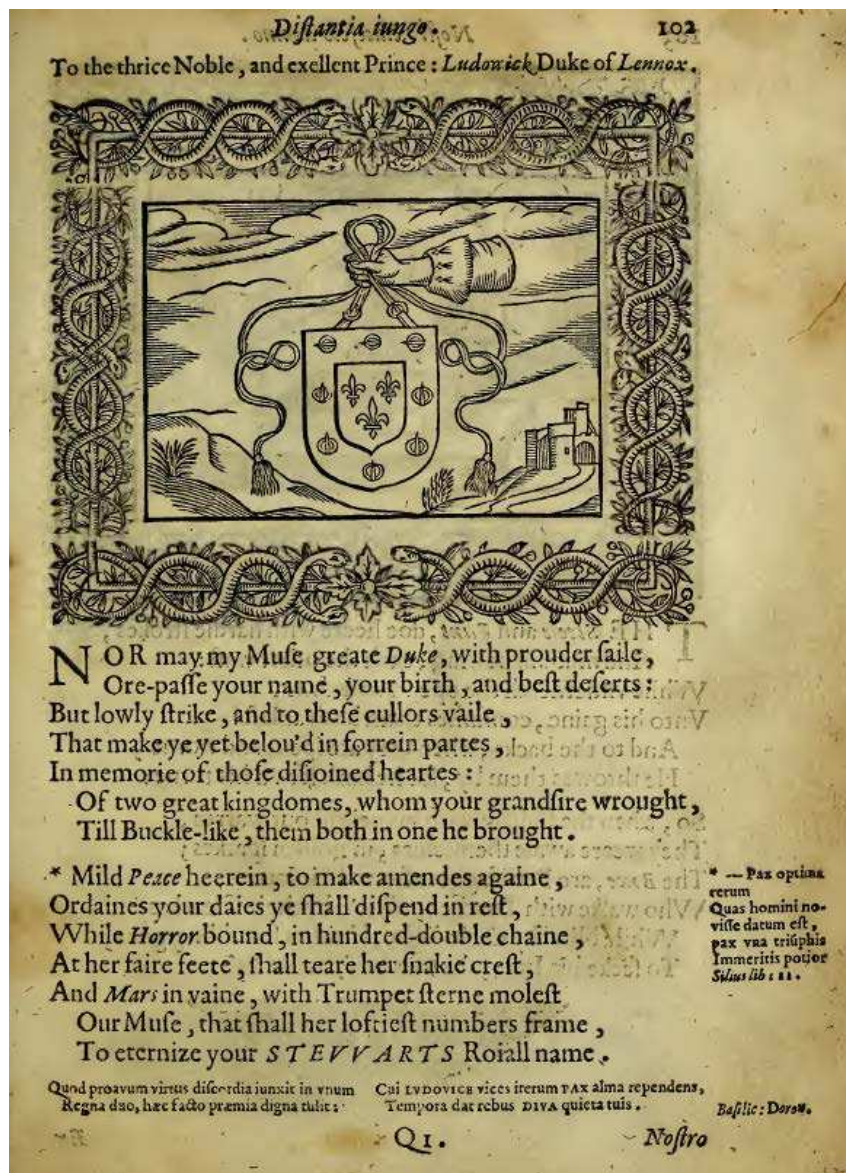 Distantia iungo. 102
To the thrice Noble, and exellent Prince: Ludowick Duke of Lennox.
NOR may my Muse greate Duke, with prouder saile,
Ore-passe your name, your birth, and best deserts:
But lowly strike, and to these cullors vaile,
That make ye yet belou'd in forrein partes,
In memorie of those disioined heartes:
Of two great kingdomes, whom your grandsire wrought,
Till Buckle-like, them both in one he brought.
* Mild Peace heerein, to make amendes againe,
Ordaines your daies ye shall dispend in rest,
While Horror bound, in hundred-double chaine,
At her faire feete, shall teare her snakie crest,
And Mars in vaine, with Trumpet sterne molest
Our Muse, that shall her loftiest numbers frame,
To eternize your STEVVARTS Roiall name.
* — Pax optima
rerum
Quas homini no-
visse datum est,
pax vna triūphis
Immeritis potior
Silius lib: 11.
Quod proavum virtus discordia iunxit in vnum
Regna duo, hæc facto præmia digna tulit:
Cui LVDOVICE vices iterum PAX alma rependens,
Tempora dat rebus DIVA quieta tuis.
Basilic: Doron.
Q1. Nostro